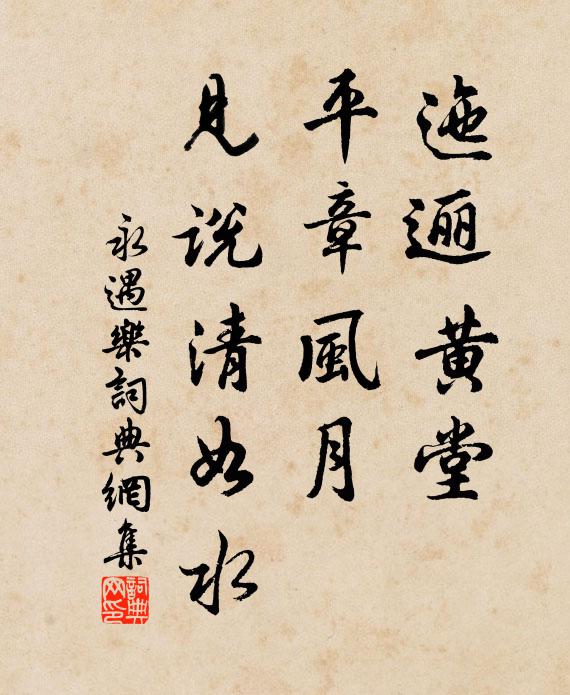 迤逦黄堂
平章風月
見說清如水
永遇樂詞典網集
詞典
网印